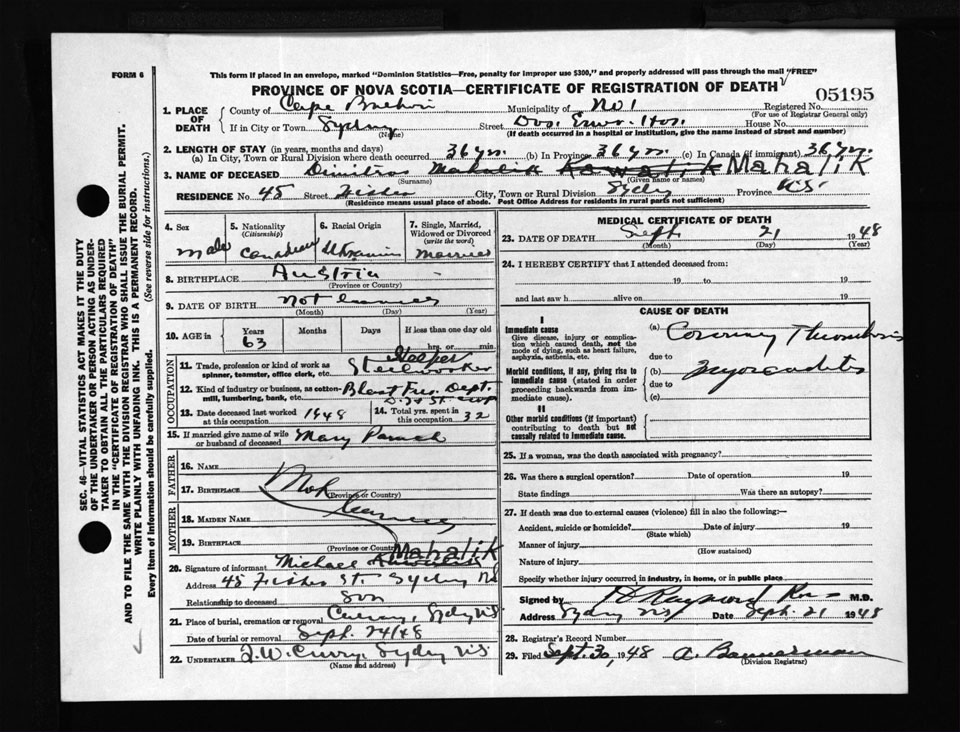 FORM 6
This form if placed in an envelope, marked "Dominion Statistics—Free, penalty for improper use $300," and properly addressed will pass through the mail "FREE"
PROVINCE OF NOVA SCOTIA—CERTIFICATE OF REGISTRATION OF DEATH
05195
1. PLACE OF DEATH
County of Cape Breton Municipality of No 1 Registered No.
(For use of Registrar General only)
If in City or Town Sydney Street House No.
(Name) (If death occurred in a hospital or institution, give the name instead of street and number)
2. LENGTH OF STAY (in years, months and days)
(a) In City, Town or Rural Division where death occurred 36 yrs. (b) In Province 36 yrs. (c) In Canada (if immigrant) 36 yrs.
3. NAME OF DECEASED Mahalik Kowalik Mahalik
(Surname) (Given name or names)
RESIDENCE No 45 Street Fisher City, Town or Rural Division Sydney Province N.S.
(Residence means usual place of abode. Post Office Address for residents in rural parts not sufficient)
4. Sex
Male
5. Nationality
(Citizenship)
Canadian
6. Racial Origin
7. Single, Married, Widowed or Divorced
(write the word)
Married
8. BIRTHPLACE Austria
9. DATE OF BIRTH Not
(Month) (Day) (Year)
10. AGE in
Years Months Days If less than one day old
63 hrs. or min.
OCCUPATION
11. Trade, profession or kind of work as spinner, teamster, office clerk, etc. Steelworker
12. Kind of industry or business, as cotton-mill, lumbering, bank, etc. Dept.
13. Date deceased last worked at this occupation 1948
14. Total yrs. spent in this occupation 32
15. If married give name of wife or husband of deceased Mary
FATHER
16. NAME
17. BIRTHPLACE
(Province or Country)
MOTHER
18. MAIDEN NAME
19. BIRTHPLACE
(Province or Country)
Mahalik
20. Signature of informant Michael
Address 45 Fisher St Sydney NS
Relationship to deceased Son
21. Place of burial, cremation or removal Sydney N.S.
Date of burial or removal Sept. 24/48
22. UNDERTAKER J.W. Curry, Sydney N.S.
(Name and address)
MEDICAL CERTIFICATE OF DEATH
23. DATE OF DEATH Sept. 21 1948
(Month) (Day) (Year)
24. I HEREBY CERTIFY that I attended deceased from:
19 to 19
and last saw h alive on 19
CAUSE OF DEATH
I
Immediate cause
Give disease, injury or complication which caused death, not the mode of dying, such as heart failure, asphyxia, asthenia, etc.
(a) Coronary Thrombosis
due to
Morbid conditions, if any, giving rise to immediate cause (stated in order proceeding backwards from immediate cause).
(b) Myocarditis
due to
(c)
II
Other morbid conditions (if important) contributing to death but not causally related to immediate cause.
25. If a woman, was the death associated with pregnancy?
26. Was there a surgical operation? Date of operation 19
State findings Was there an autopsy?
27. If death was due to external causes (violence) fill in also the following:—
Accident, suicide or homicide? Date of injury 19
(State which)
Manner of injury
(How sustained)
Nature of injury
Specify whether injury occurred in industry, in home, or in public place
Signed by H Raymond Ross M.D.
Address Sydney NS Date Sept. 21 1948
28. Registrar's Record Number
29. Filed Sept. 30, 1948 A. Bannerman
(Division Registrar)
SEC. 46—VITAL STATISTICS ACT MAKES IT THE DUTY
OF THE UNDERTAKER OR PERSON ACTING AS UNDER-
TAKER TO OBTAIN ALL THE PARTICULARS REQUIRED
IN THE "CERTIFICATE OF REGISTRATION OF DEATH"
AND TO FILE THE SAME WITH THE DIVISION REGISTRAR WHO SHALL ISSUE THE BURIAL PERMIT.
WRITE PLAINLY WITH UNFADING INK. THIS IS A PERMANENT RECORD.
Every item of information should be carefully supplied. (See reverse side for instructions.)